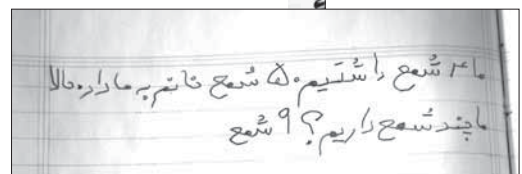 ما ۴ شمع داشتیم. ۵ شمع خانم به ما داد. حالا
ما چند شمع داریم؟ ۹ شمع